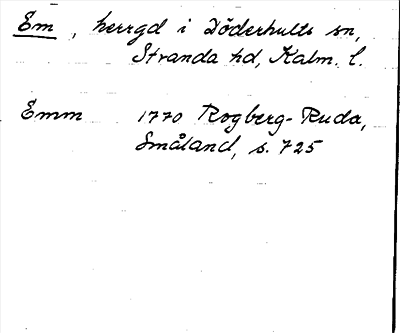 Em, herrgd i Döderhults sn,
Stranda hd, Kalm. l.
Emm 1770 Rogberg-Ruda,
Småland, s. 725